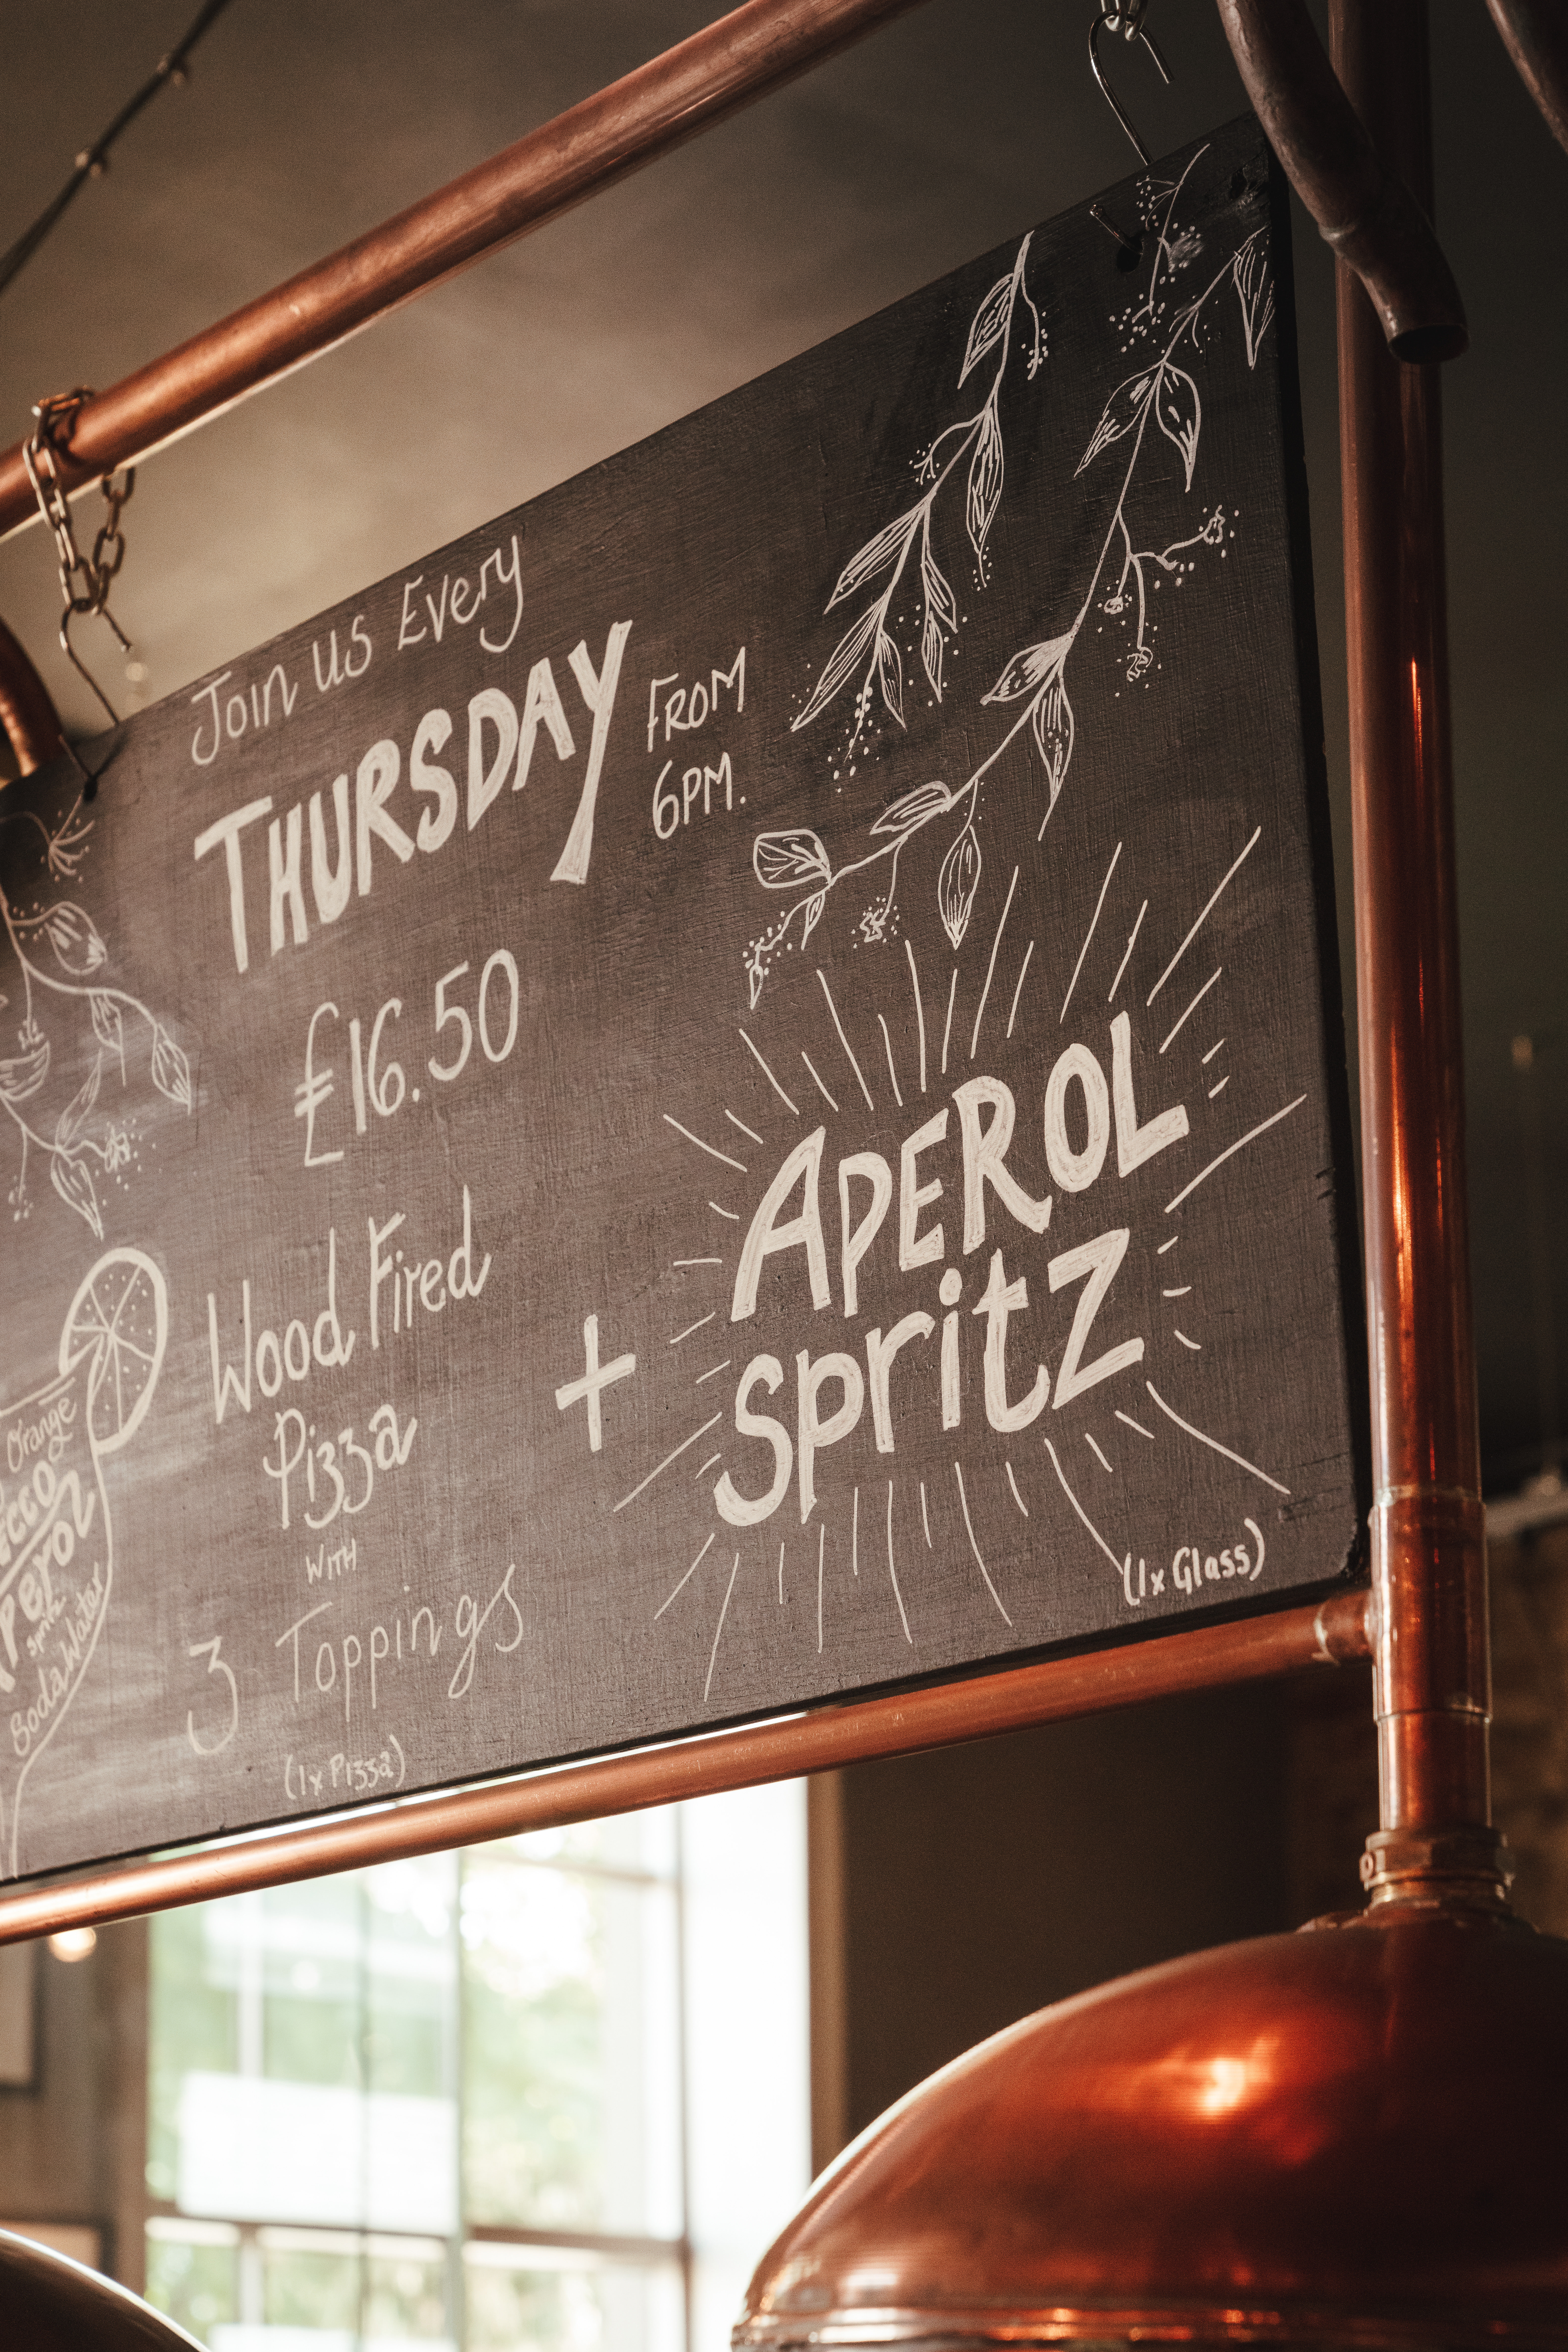 Join us Every
THURSDAY
FROM
6PM.
£16.50
Wood Fired
Pizza
WITH
3 Toppings
(1x Pizza)
+
APEROL
spritz
(1x Glass)
Orange
spritz
Soda Water